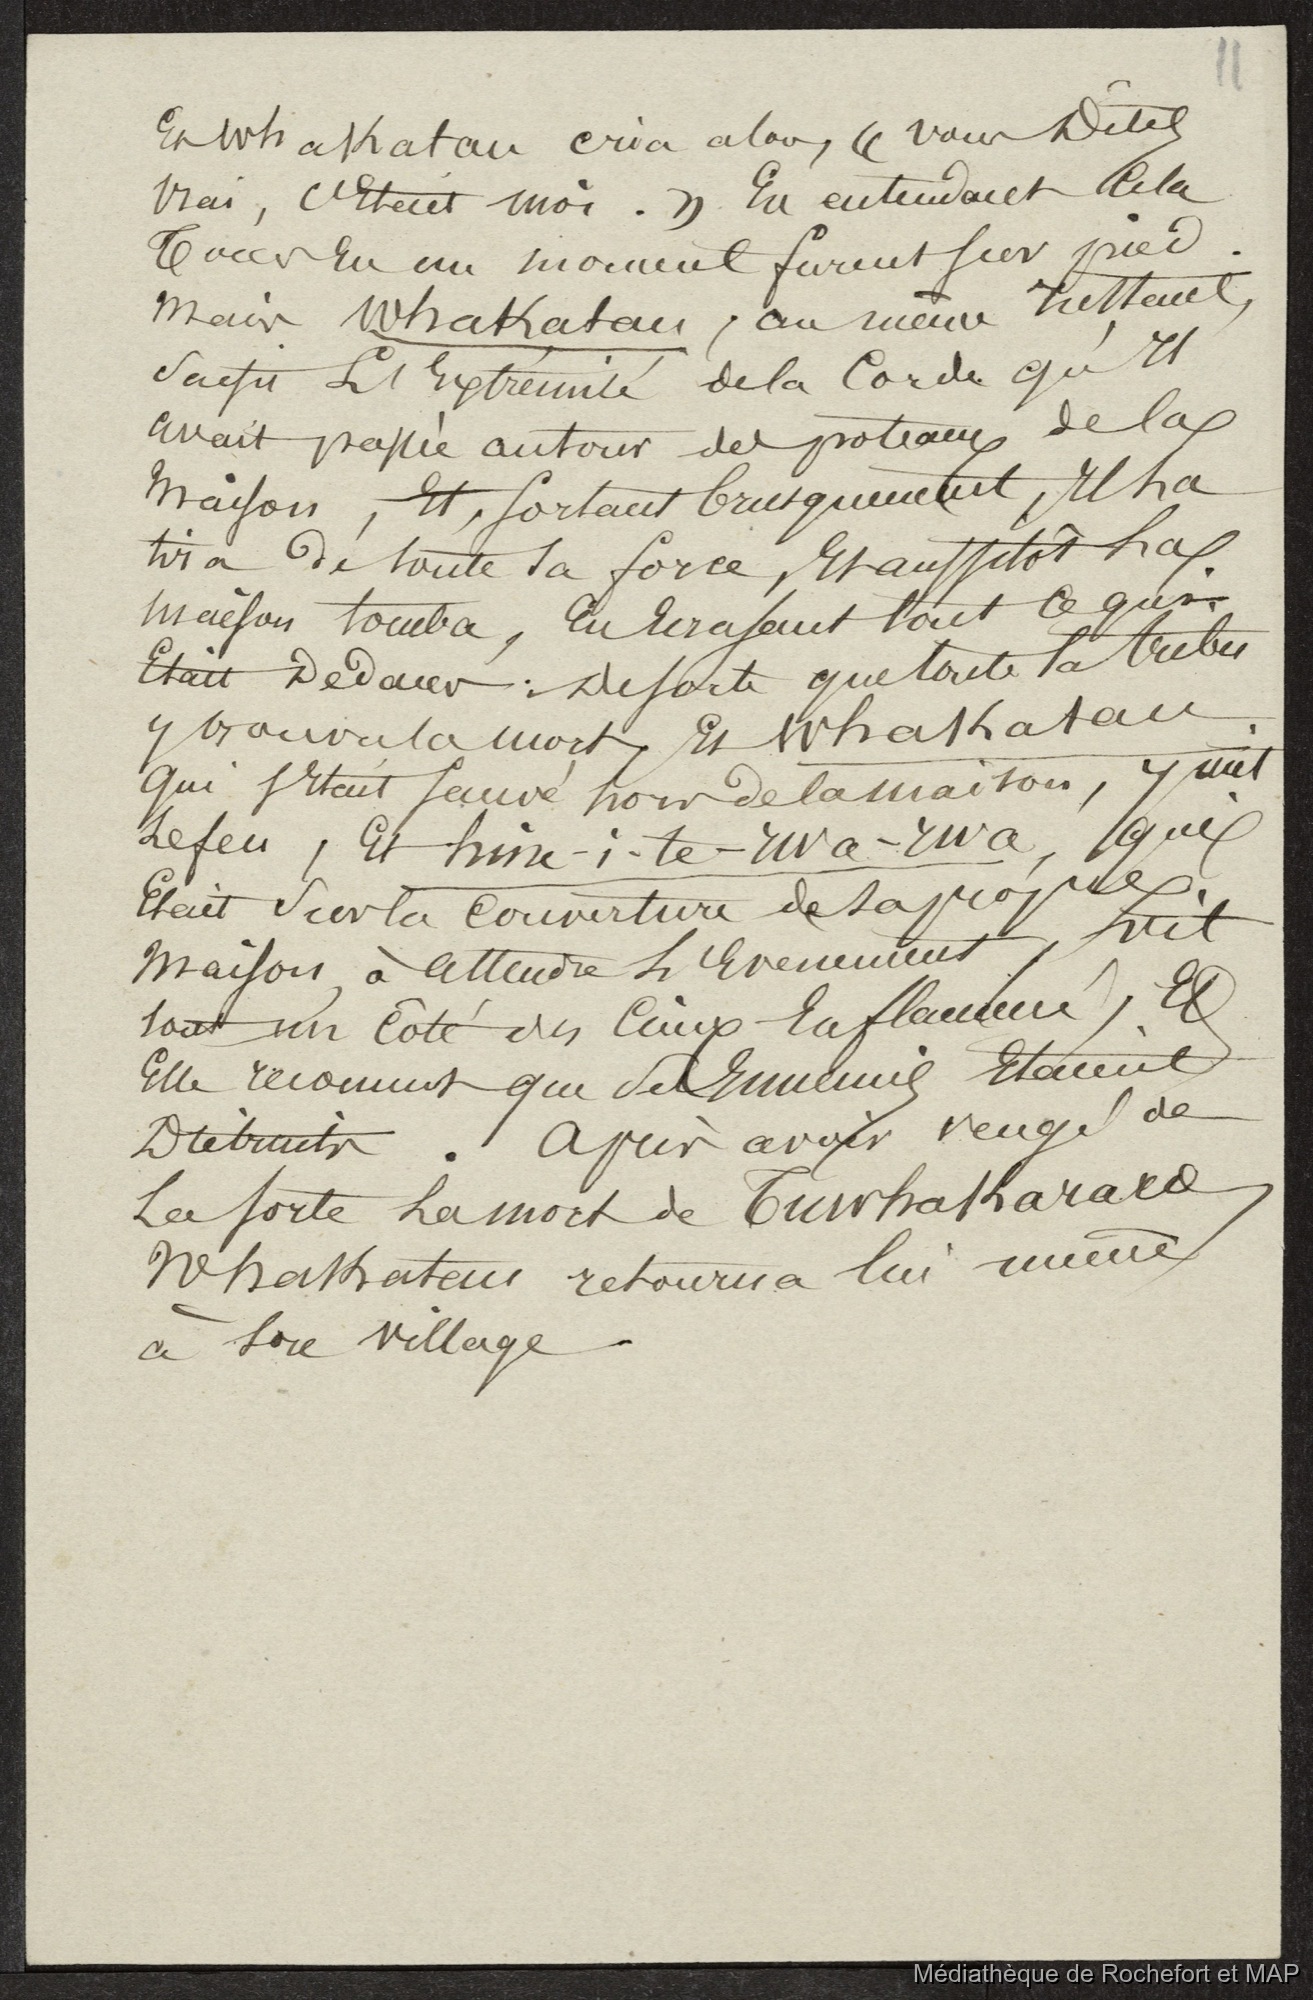 11
Et Whakatau cria alors, « vous Dites
vrai, c'Etait moi. » En entendant Cela
Tous En un moment furent sur pied.
Mais Whakatau, au même Instant,
Saisit L'Extrémité de la Corde qu'Il
avait passée autour des poteaux de la
Maison, Et, sortant brusquement, Il la
tira de toute sa force, Et aussitôt La
Maison tomba, En Ecrasant tout Ce qui
Etait Dedans : De sorte que toute la tribu
y trouva la mort, Et Whakatau
qui s'Etait sauvé hors de la maison, y mit
Le feu, Et hine-i-te-iwa-iwa, qui
Etait sur la Couverture de sa propre
Maison, à attendre L'Evenement, vit
tout un Côté des Cieux Enflammé, Et
Elle reconnut que ses Ennemis Etaient
Détruits. Après avoir vengé de
La sorte La mort de Tuwhakararo
Whakatau retourna lui même
à son village.
Médiathèque de Rochefort et MAP